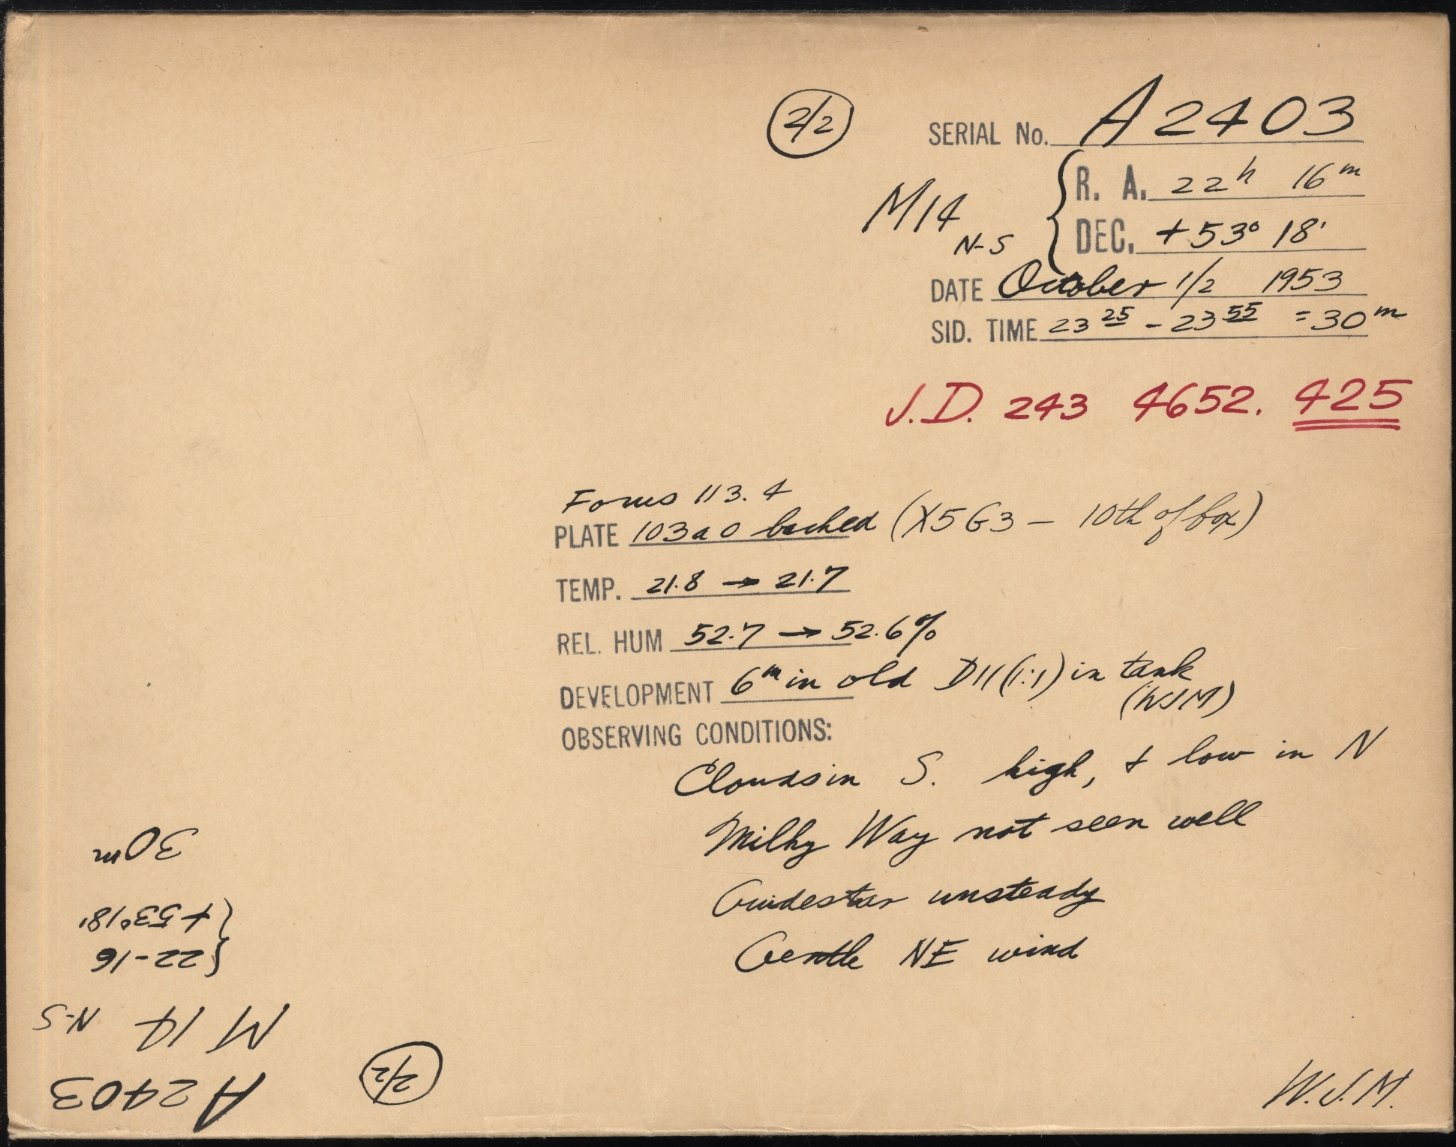 2/2
SERIAL No. A2403
M14 N-S
R. A. 22h 16m
DEC. +53° 18'
DATE October 1/2 1953
SID. TIME 23 25 - 23 55 = 30m
J.D. 243 4652.425
Focus 113.4
PLATE 103a0 backed (X5G3 - 10th of box)
TEMP. 21.8 → 21.7
REL. HUM 52.7 → 52.6%
DEVELOPMENT 6m in old D11 (1:1) in tank
(WJM)
OBSERVING CONDITIONS:
Clouds in S. high, + low in N
Milky Way not seen well
Guidestar unsteady
Gentle NE wind
W.J.M.
A2403
2/2
M14 N-S
22-16
+53°18'
30m